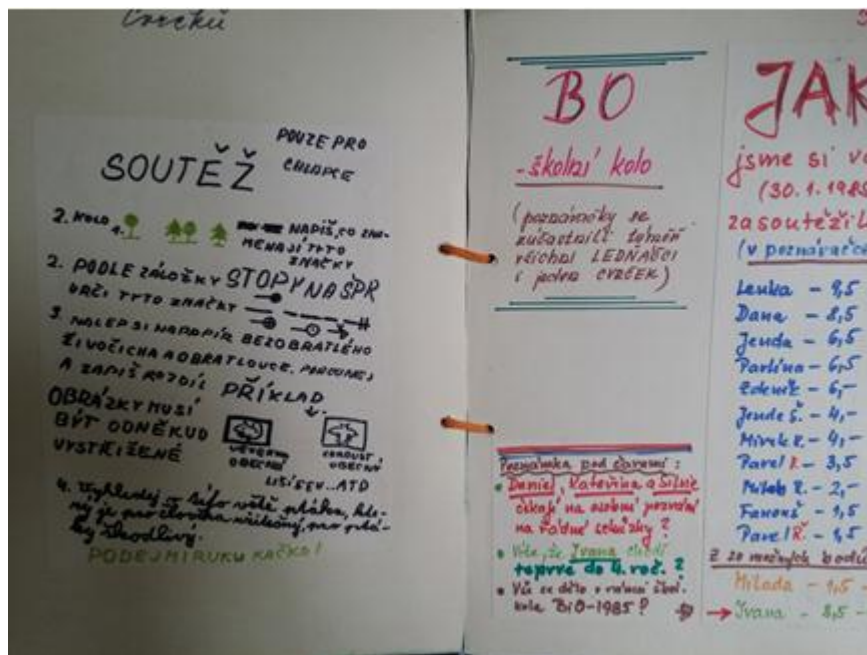 cvrčků
SOUTĚŽ
POUZE PRO
CHLAPCE
2. KOLO
1.
NAPIŠ, CO ZNA-
MENAJÍ TYTO
ZNAČKY
2. PODLE ZÁLOŽKY STOPY NA ŠPR
URČI TYTO ZNAČKY
3. NALEP SI NA PAPÍR BEZOBRATLÉHO
ŽIVOČICHA A OBRATLOVCE. POROVNEJ
A ZAPIŠ ROZDÍL PŘÍKLAD
OBRÁZKY MUSÍ
BÝT ODNĚKUD
VYSTŘIŽENÉ
OBECNÁ
OBECNÝ
LIŠÍ SE V.. ATD
4. Vyhledej v této větě ptáka, kte-
rý je pro člověka užitečný, pro ptá-
ky škodlivý.
PODEJ MI RUKU KAČKO!
BO
-školní kolo
(poznávačky se
zúčastnili téměř
všichni LEDŇÁČCI
i jeden CVRČEK)
Poznámka pod čarami:
• Daniel, Kateřina a Silvie
čekají na osobní pozvání
na řádné schůzky?
• Víte, že Ivana chodí
teprve do 4. roč.?
• Víš se dělo v rámci škol.
kola BiO-1985?
JAK
jsme si
(30.1.1985
zasoutěžil
(v poznávačce
Lenka - 9,5
Dana - 8,5
Jenda - 6,5
Pavlína - 6,5
Zdeněk - 6,-
Jenda Š. - 4,-
Mirek R. - 4,-
Pavel R. - 3,5
R. - 2,-
- 1,5
Pavel Ř. - 1,5
Z 20 možných bodů
Milada - 9,5 -
→ Ivana - 8,5 -